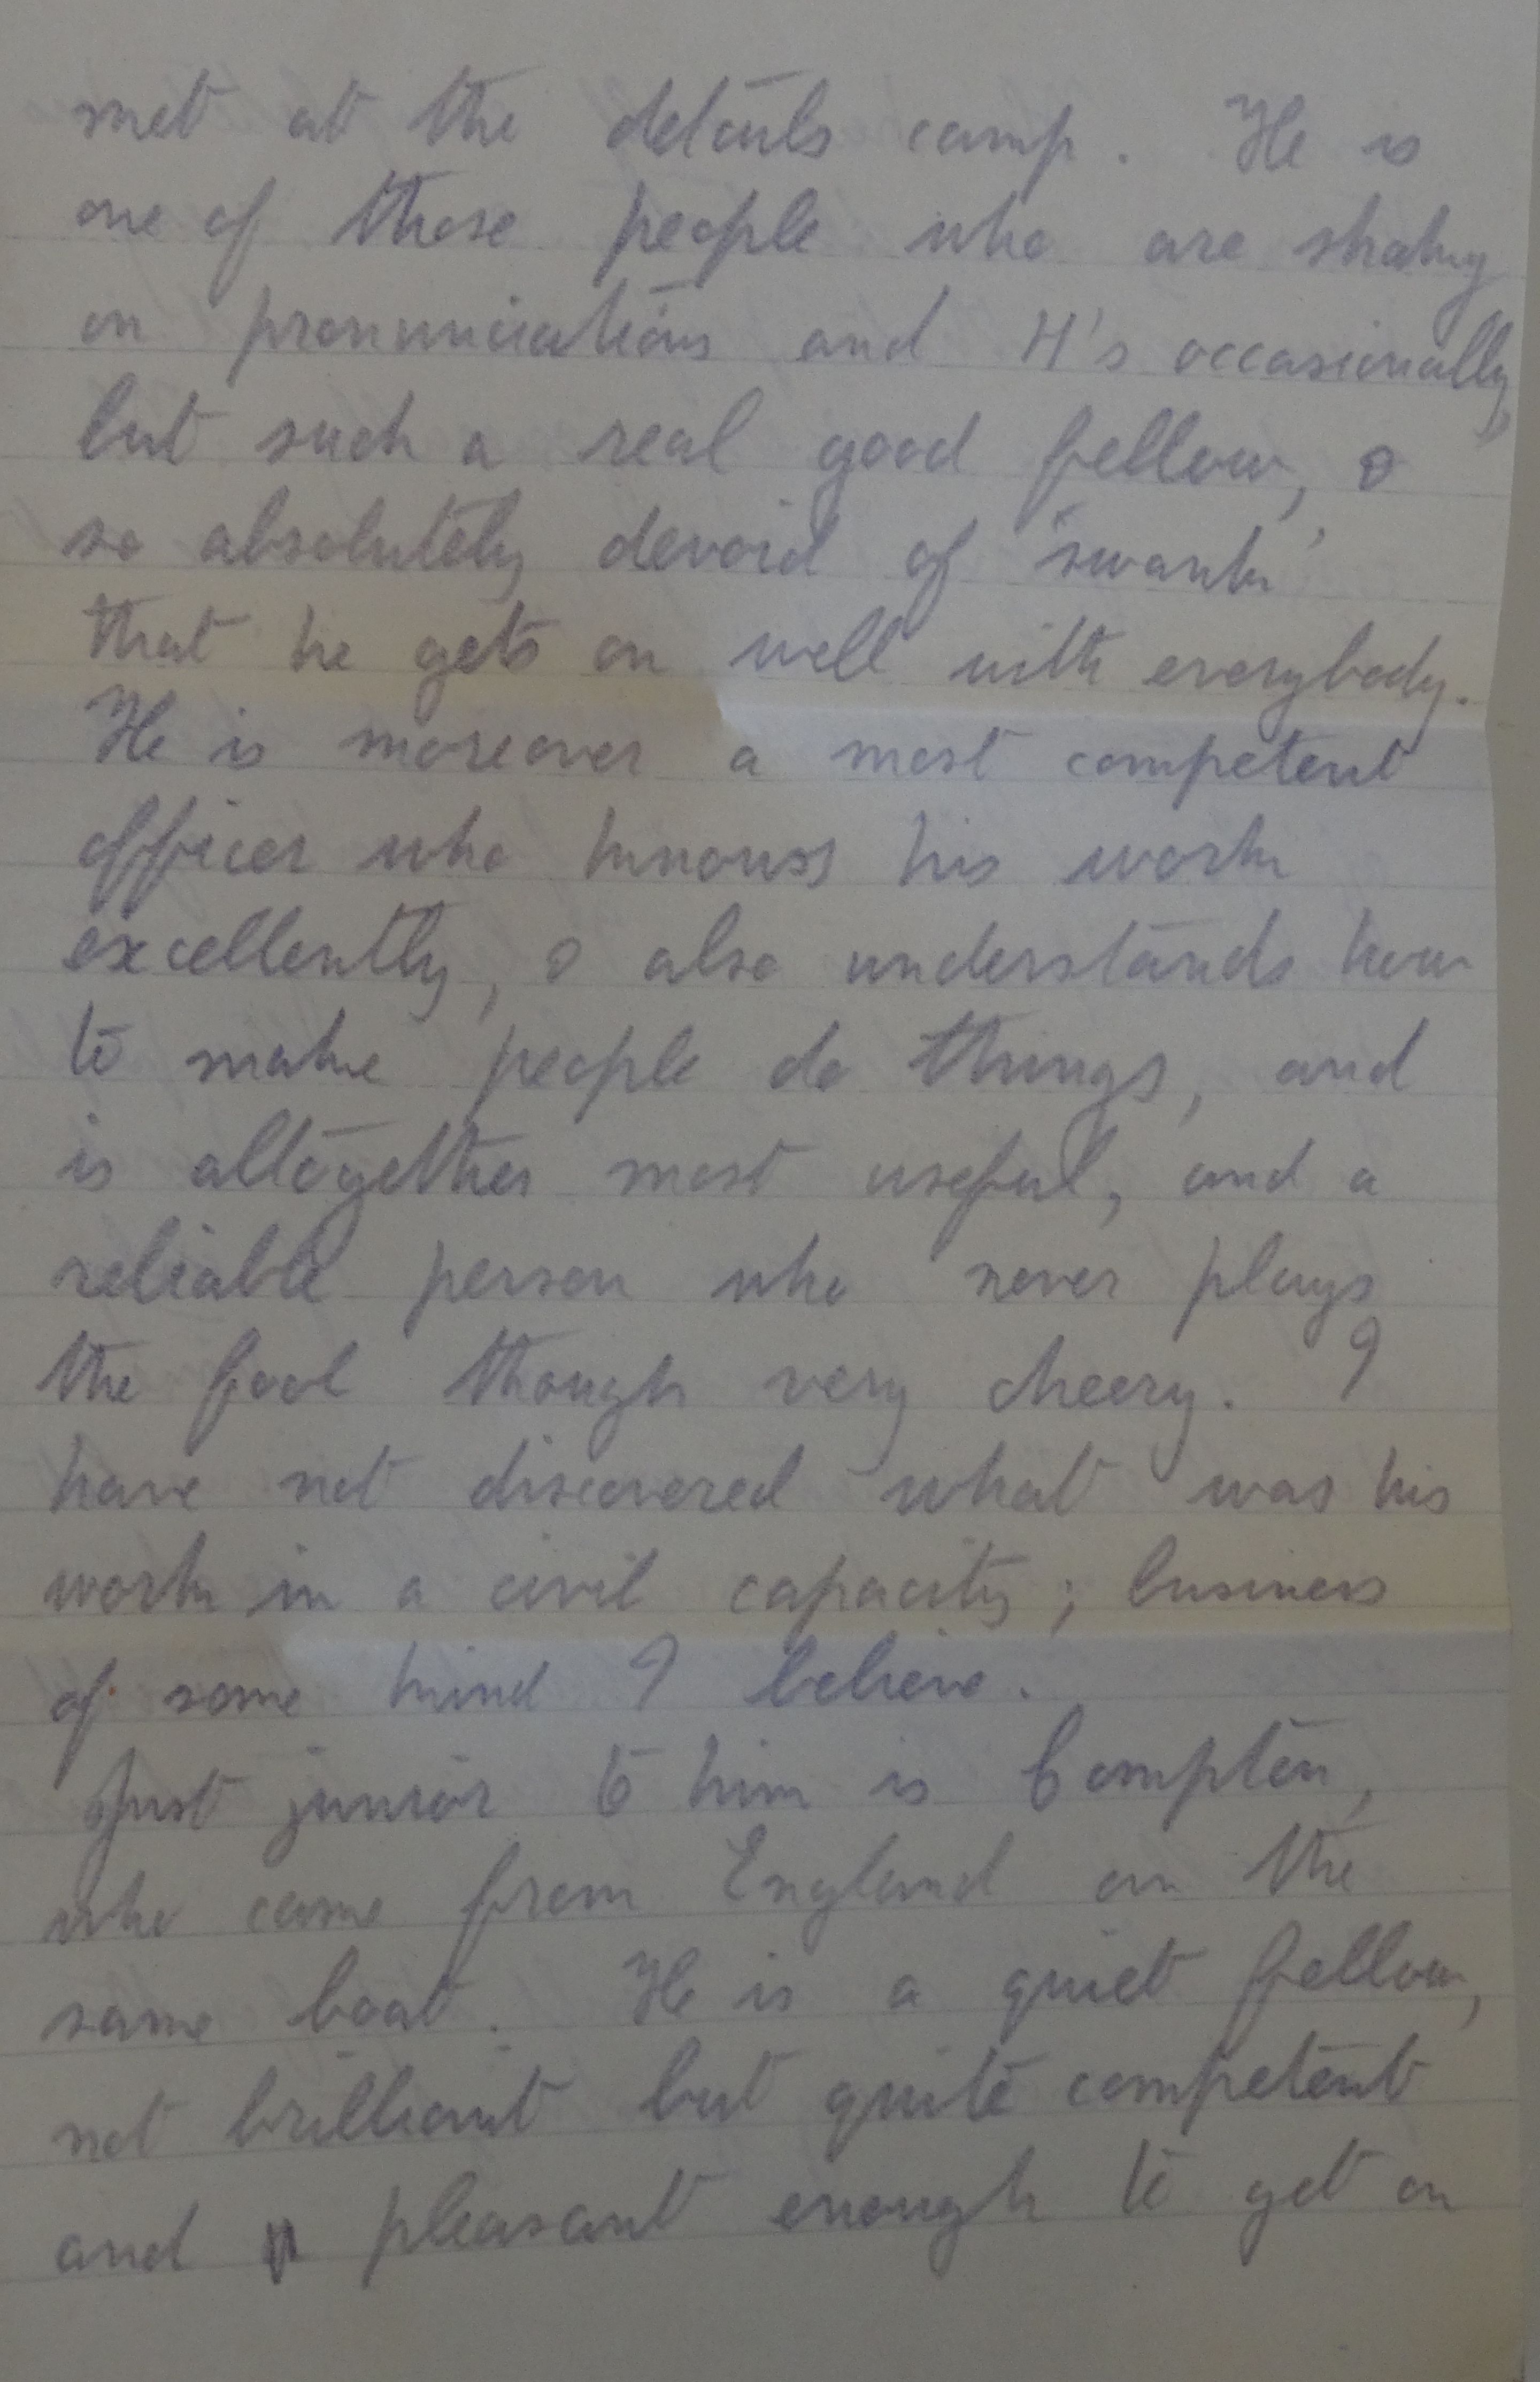 met at the details camp. He is
one of those people who are shaky
on pronunciations and H's occasionally,
but such a real good fellow, &
so absolutely devoid of 'swank'
that he gets on well with everybody.
He is moreover a most competent
officer who knows his work
excellently, & also understands how
to make people do things, and
is altogether most useful, and a
reliable person who never plays
the fool though very cheery. I
have not discovered what was his
work in a civil capacity; business
of some kind I believe.
Just junior to him is Compton,
who came from England on the
same boat. He is a quiet fellow,
not brilliant but quite competent
and pleasant enough to get on